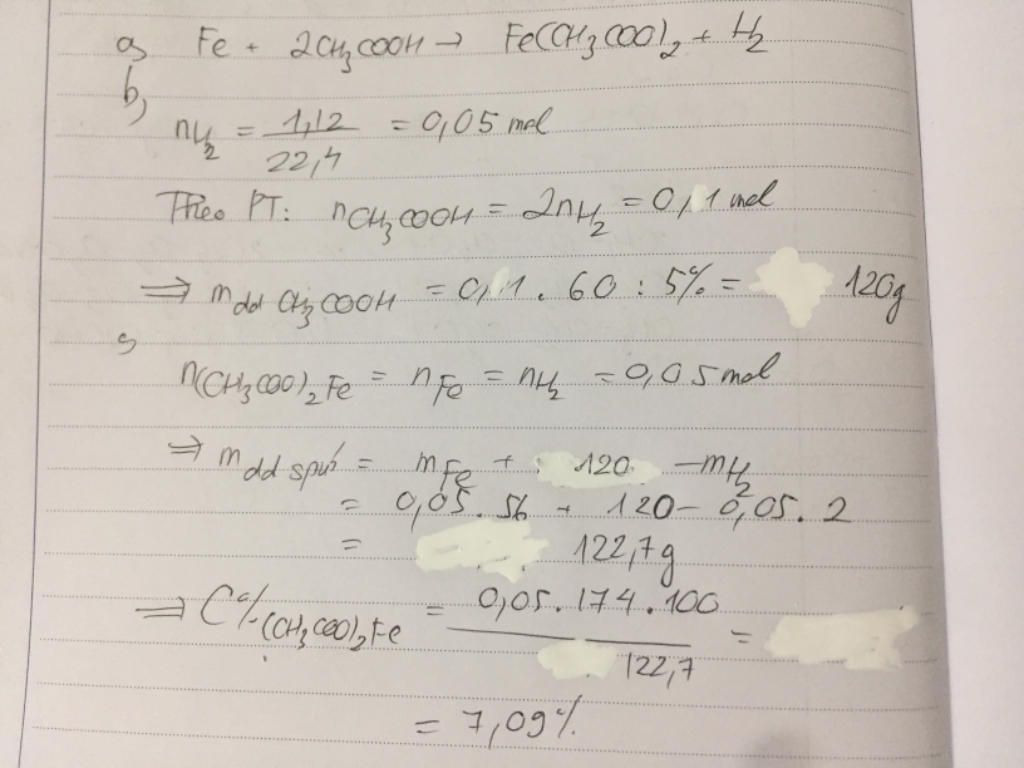 a, Fe + 2CH3COOH → Fe(CH3COO)2 + H2
b,
nH2 = 1,12 / 22,4 = 0,05 mol
Theo PT: nCH3COOH = 2nH2 = 0,1 mol
⇒ mdd CH3COOH = 0,1 . 60 : 5% = 120g
c,
n(CH3COO)2Fe = nFe = nH2 = 0,05 mol
⇒ mdd spứ = mFe + 120 - mH2
= 0,05 . 56 + 120 - 0,05 . 2
= 122,7g
⇒ C%(CH3COO)2Fe = 0,05 . 174 . 100 / 122,7 =
= 7,09%